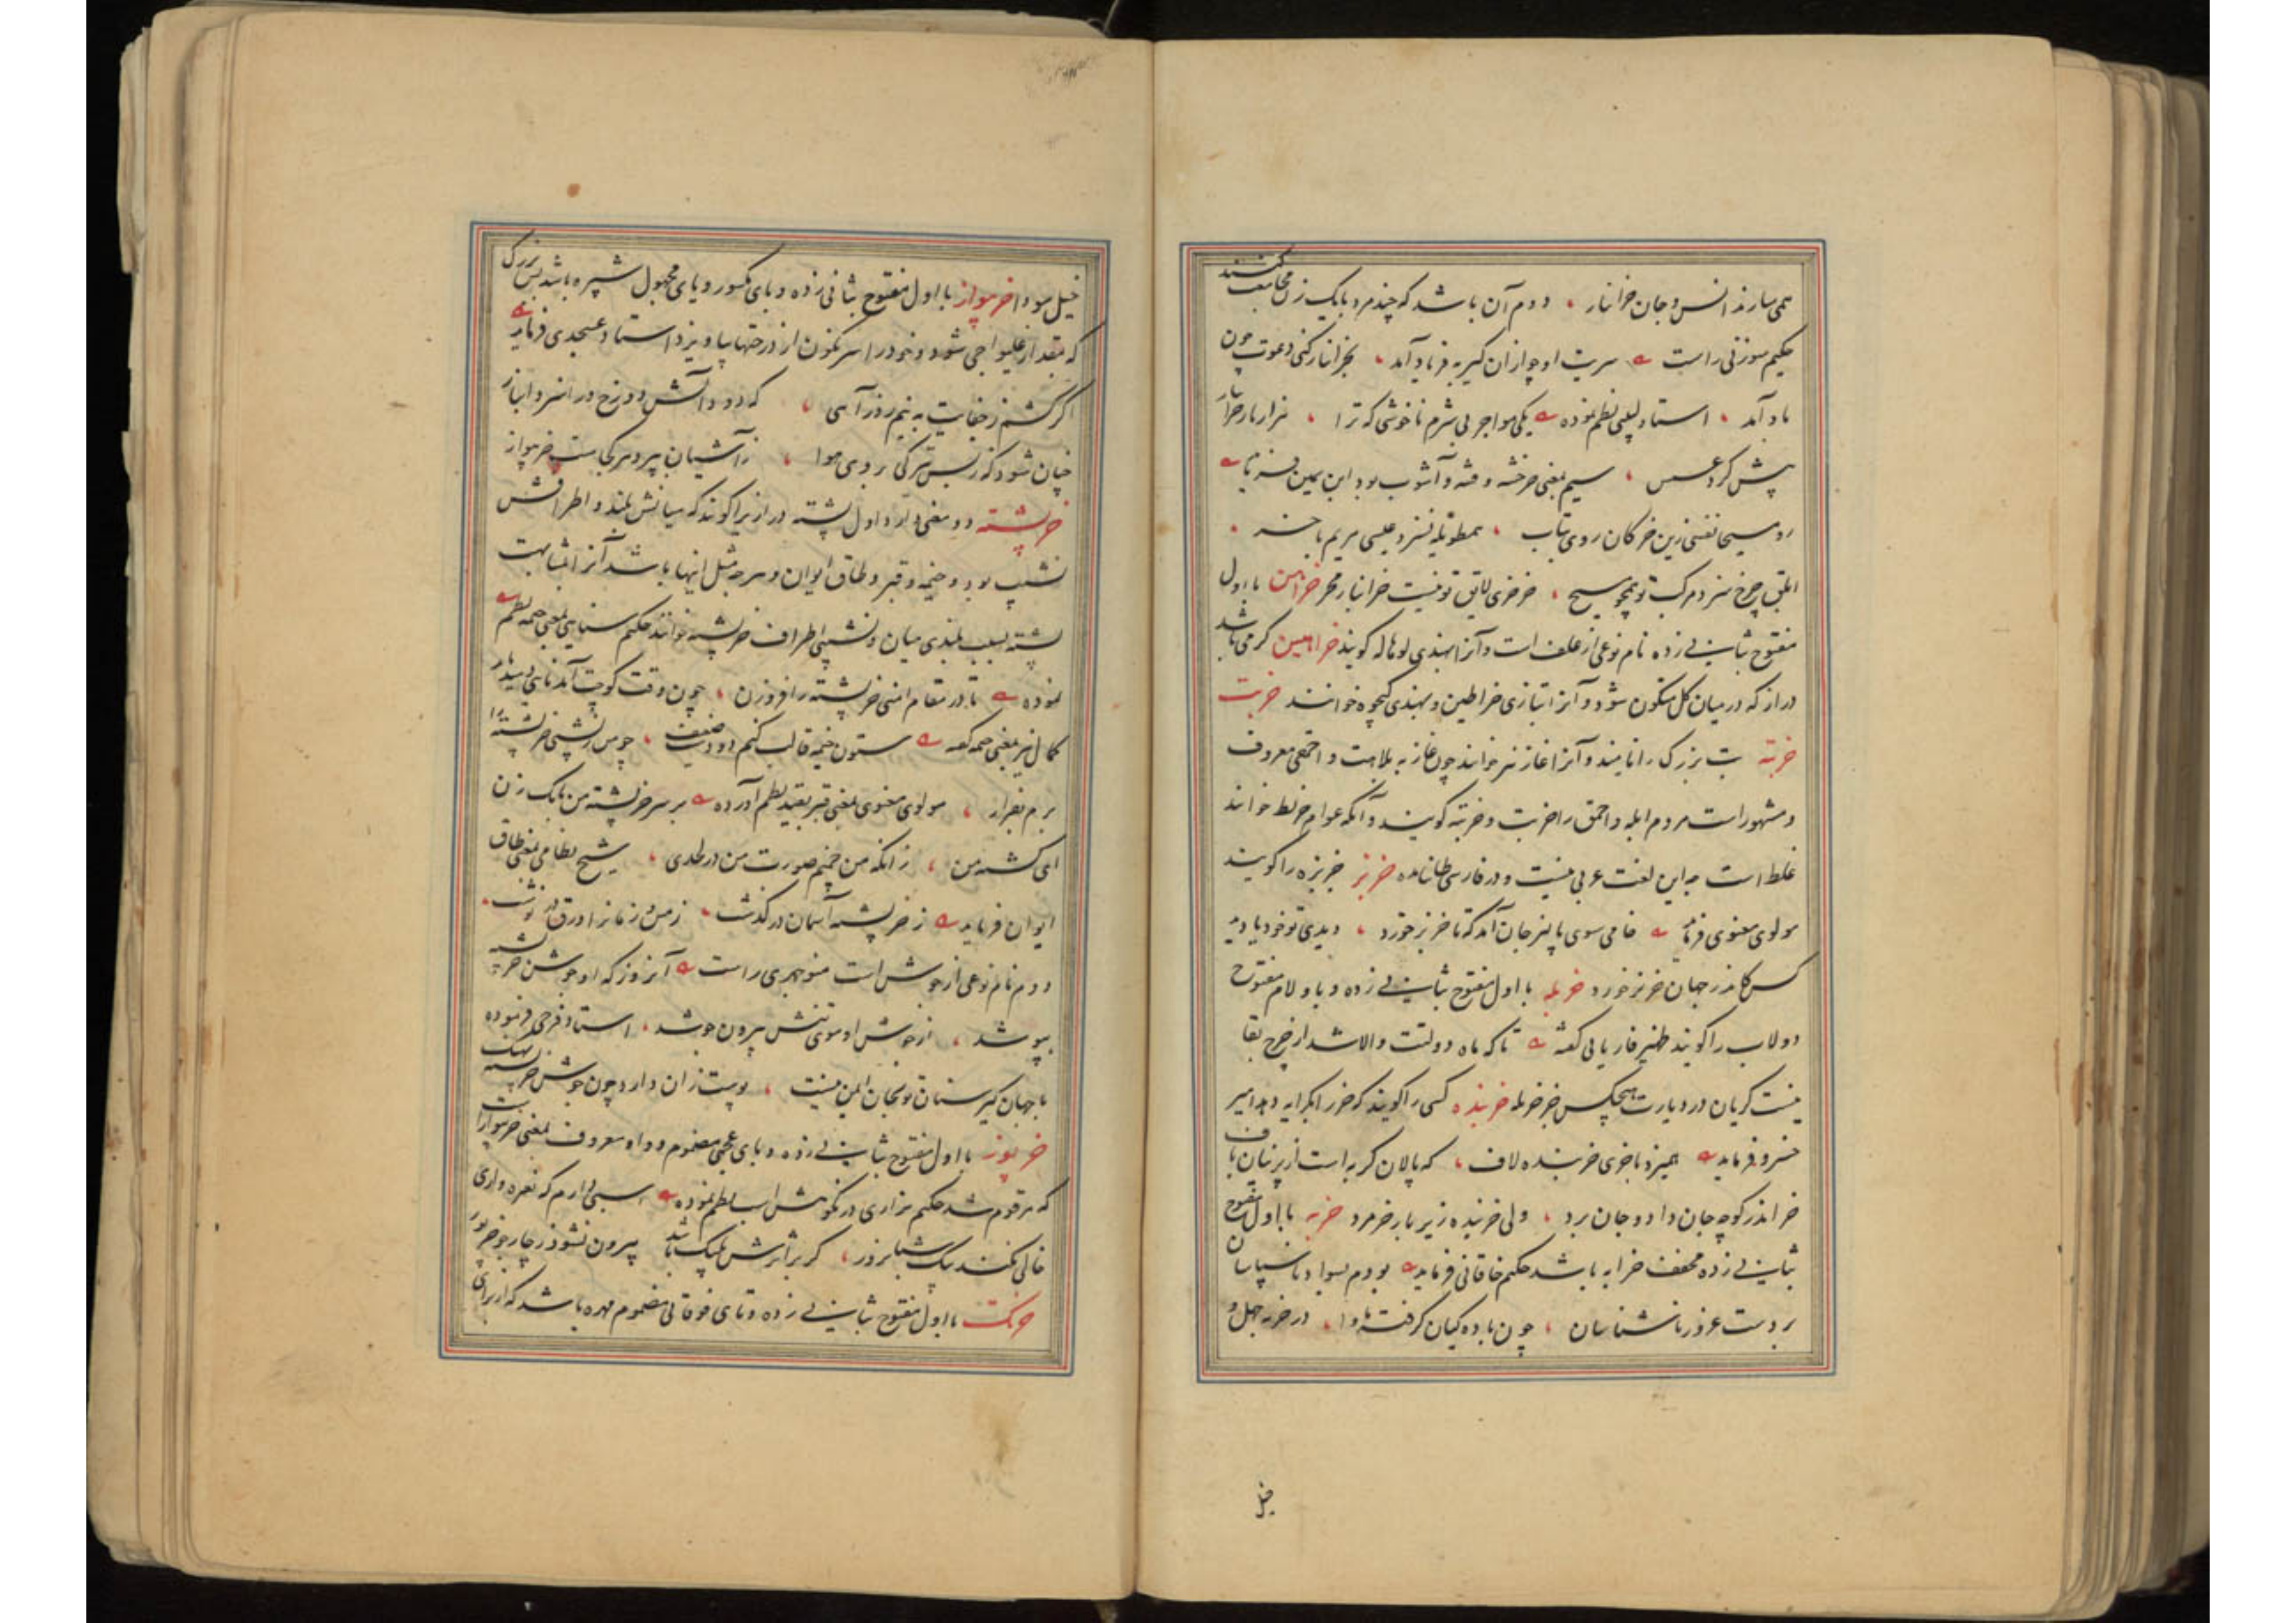 همی سازند انس و جان خرانبار دوم آن باشد که چند مرد با یک زن مجامعت کنند
حکیم سوزنی راست بفریاد آمد بخرانبار کنی دعوت چون
یاد آمد استاد لبیبی نظم نموده یکی مواجر بی شرم ناخوشی که ترا هزار بار خرانبار
پیش کرد عسس سیم بمعنی خرخشه و فتنه و آشوب بود ابن یمین
مسیحا نفسی زین خرکان روی بتاب عیسی مریم با خر
ابلق چرخ سزد مرکب تو همچو مسیح خر خری لایق تو نیست خرانبار مخر خرامن با اول
مفتوح بثانی زده نام نوعی از علف است و آنرا بهندی گویند خرامین کرمی باشد
دراز که در میان گل متکون شود و آنرا بتازی خراطین و بهندی کیچوه خوانند خربت
خربته بت بزرگ را نامند و آنرا غاز نیز خوانند چون غاز به بلاهت و احمقی معروف
و مشهور است مردم ابله و احمق را خربت و خربته گویند و آنکه عوام خربط خوانند
غلط است چه این لغت عربی نیست و در فارسی طا نیامده خربز خربزه را گویند
مولوی معنوی فرماید خامی سوی پالیز جان آمد که تا خربز خورد دیدی تو خود یا دید
کس کاندر جهان خر بز خورد خربله با اول مفتوح بثانی زده و با و لام مفتوح
دولاب را گویند ظهیر فاریابی گفته تا که ماه دولتت والا شد از چرخ بقا
نیست گریان در دیارت هیچکس جز خربله خربنده کسی را گویند که خر را بکرایه دهد امیر
خسرو فرماید همیزد با خری خربنده لاف که پالان گر به است از پرنیان باف
خر اندر کوچه جان داد و جان برد ولی خربنده زیر بار خر مرد خربه با اول مفتوح
بثانی زده مخفف خرابه باشد حکیم خاقانی فرماید بودم ناسپاسان
بر دست ناشناسان چون گرفته مأوا در خربه جهل و
خیل
خیل سودا خرمیواز با اول مفتوح بثانی زده و بای مکسور و یای مجهول شپره باشد بس بزرگ
که بمقدار غلیواجی شود و خود را سرنگون از درختها بیاویزد استاد عسجدی فرماید
اگر به نیم روز آهی که دود و آتش دوزخ در انبر و انباز
چنان شود که ز بس تیرگی بروی هوا ز آشیان بپرد خربیواز
خرپشته دو معنی دارد اول پشته دراز را گویند که میانش بلند و اطرافش
نشیب بود و خیمه و قبر و طاق ایوان و هرچه مثل اینها باشد آنرا بمشابهت
پشته بسبب بلندی میان و نشیبی اطراف خرپشته خوانند حکیم سنایی بمعنی خیمه نظم
نموده تا در مقام امنی خرپشته را فروزن چون وقت کوچت آمد نایی بدم
کمال نیز بمعنی خیمه گفته ستون خیمه قالب کنم دو دست ضعیف
مولوی معنوی بمعنی قبر بقید نظم آورده بر سر خرپشته من بانگ زن
ای کشته من زانکه من صورت من شیخ نظامی بمعنی طاق
ایوان فرماید ز خرپشته آسمان در گذشت زمین و زمان را ورق در نوشت
دوم نام نوعی از جوشن است منوچهری راست آنروز که او جوشن خرپشته
بپوشد از جوشن او موی تنش بیرون جوشد استاد فرخی فرموده
با جهانگیر سنان تو بجان ایمن نیست پوست زان دارد چون جوشن خرپشته نهنگ
خرپوز با اول مفتوح بثانی زده و بای عجمی مضموم و واو معروف بمعنی خربیواز است
که مرقوم شد حکیم نزاری در نکوهش اسب نظم نموده اسبی دارم که نعره داری
خالی نکند بیک شبانروز گر بر اثرش پلنگ باشد بیرون نشود ز چار جو خرپوز
خرتک با اول مفتوح بثانی زده و تای فوقانی مضموم مهره باشد که از برای